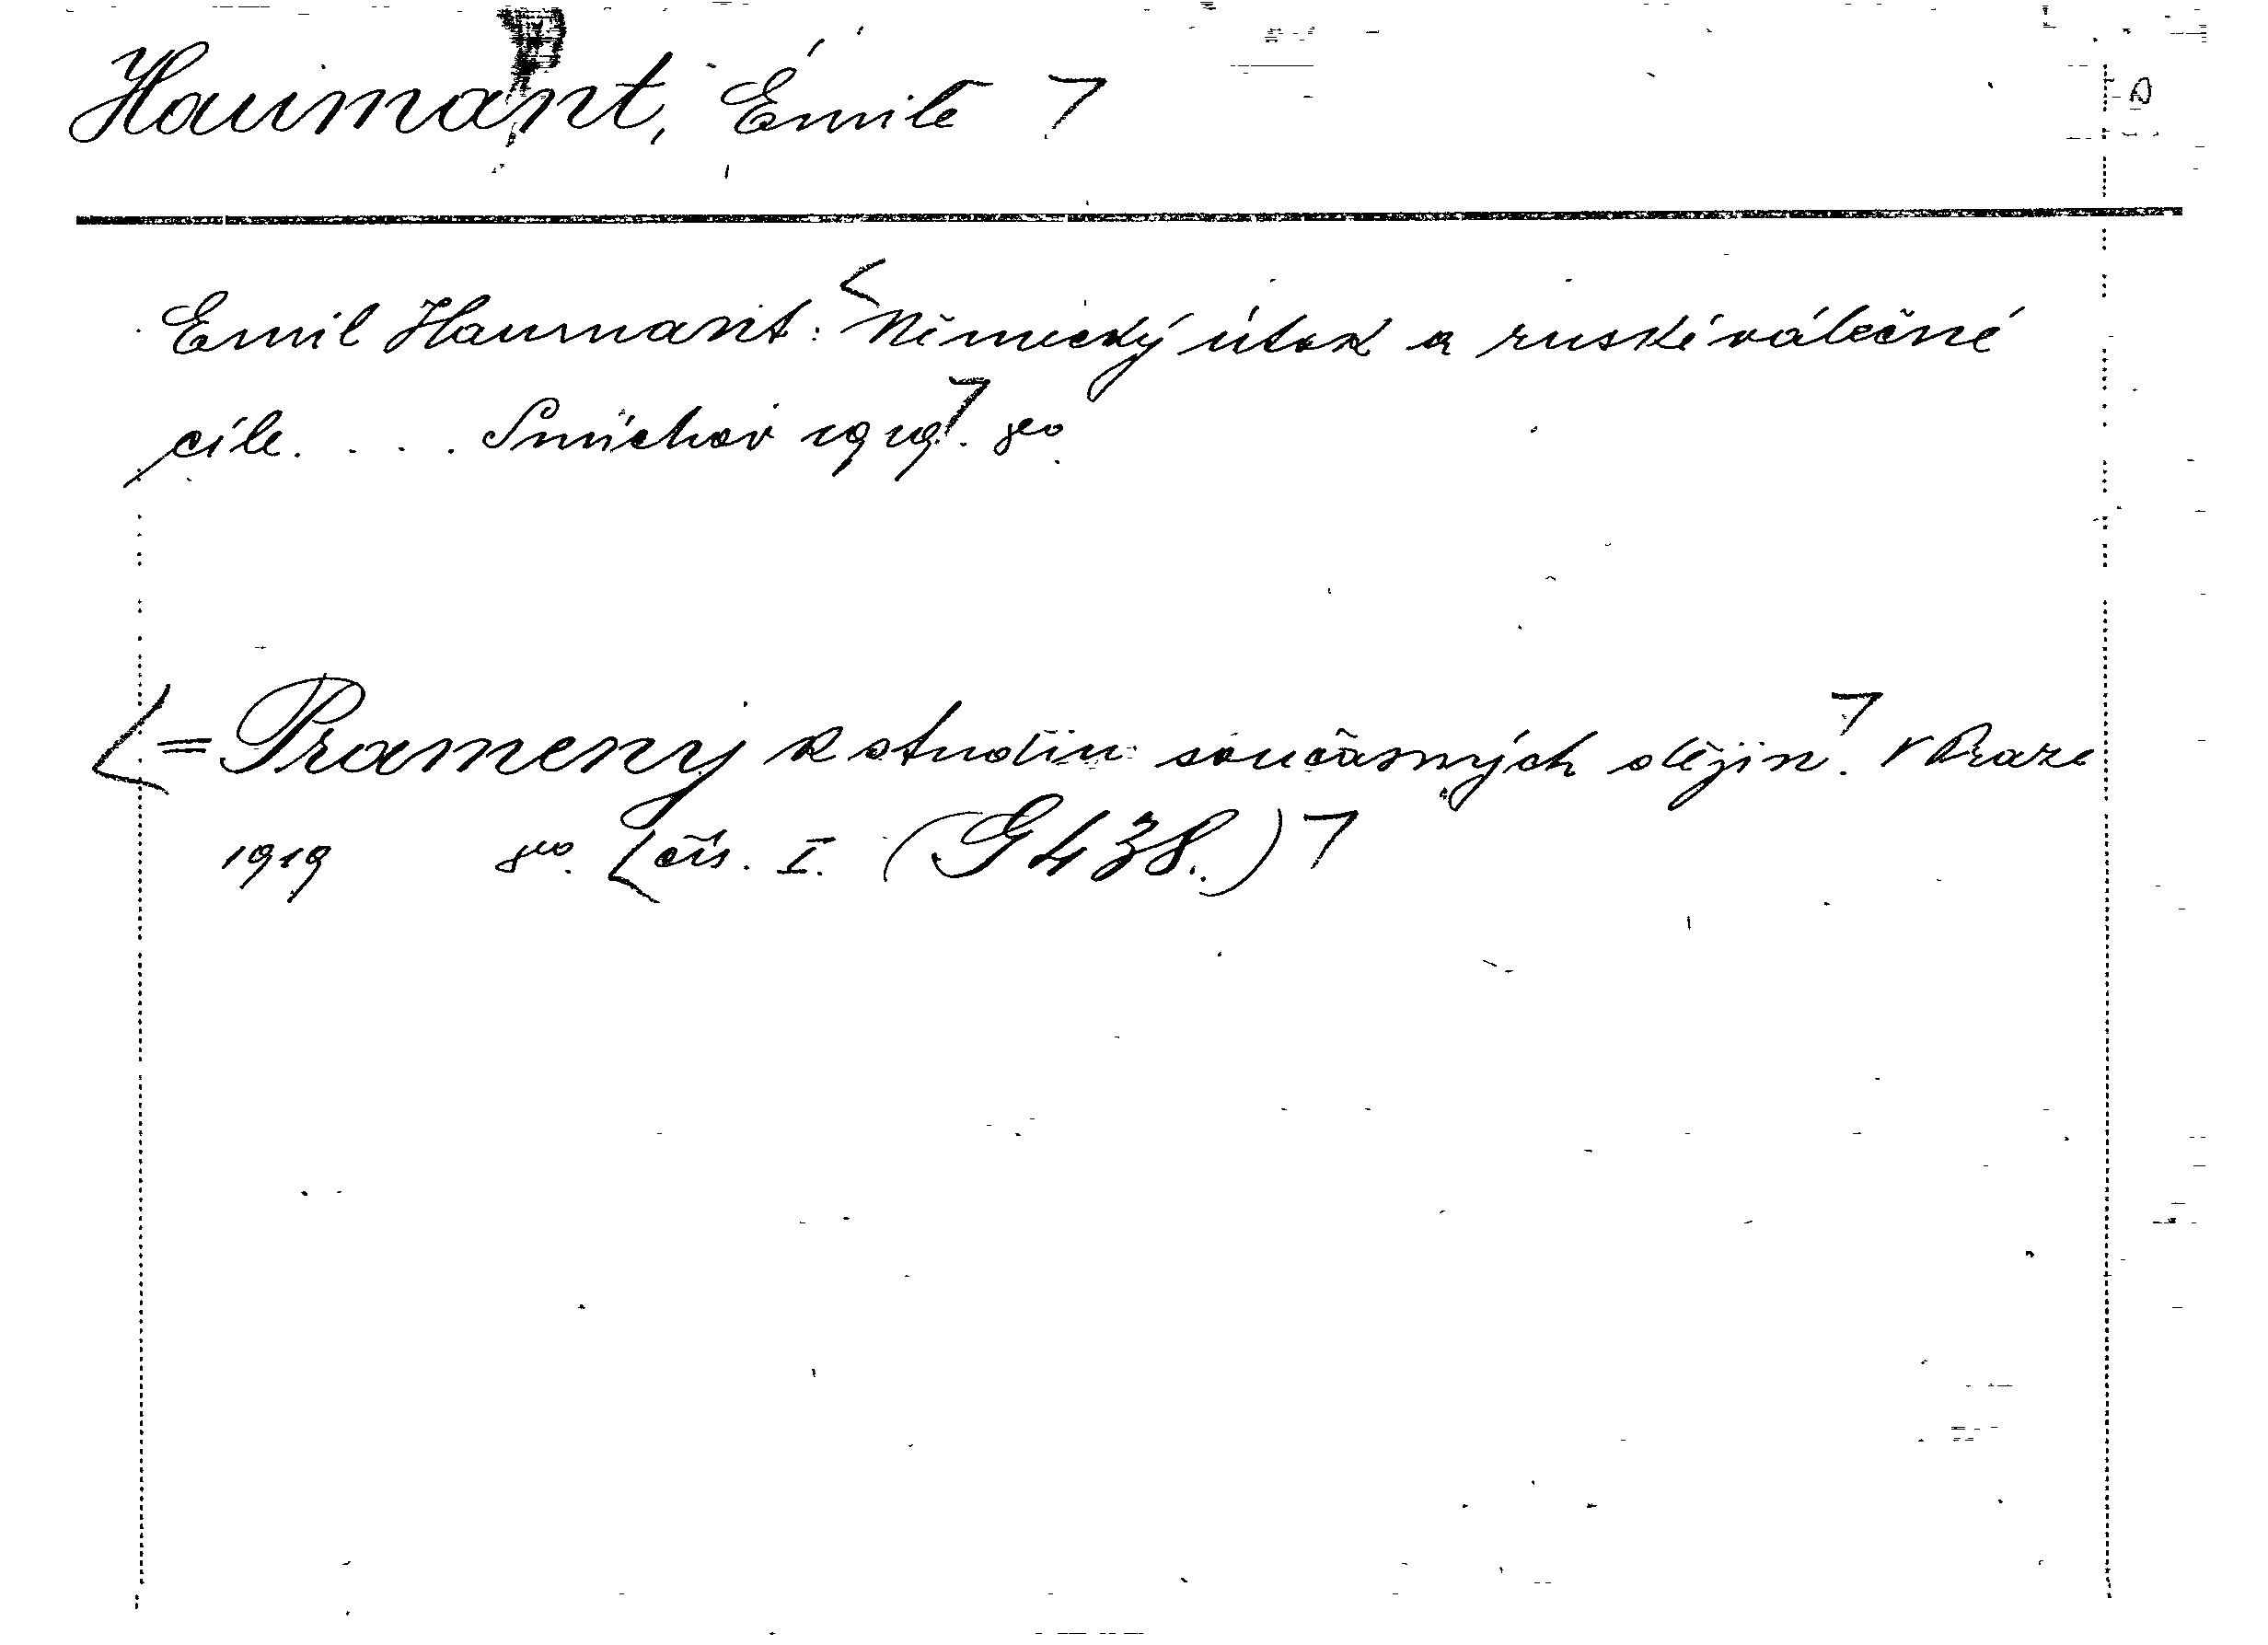 Haumant, Émile ㄱ
Emil Haumant: <Německý útok a ruské válečné
cíle. . . . Smíchov 1919ㄱ. 8⁰.
<= Prameny k studiu současných dějinㄱ. V Praze
1919 8⁰. <čís. I. (G 438.)ㄱ